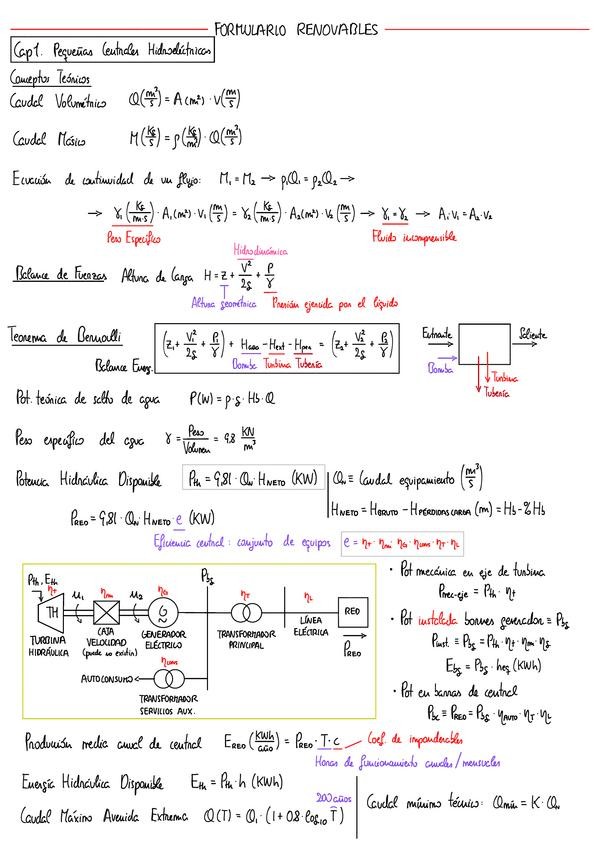 FORMULARIO RENOVABLES
Cap 1. Pequeñas Centrales Hidroeléctricas
Conceptos Teóricos
Caudal Volumétrico Q(m³/s) = A(m²) · V(m/s)
Caudal Másico M(Kg/s) = ρ(Kg/m³) · Q(m³/s)
Ecuación de continuidad de un flujo: M₁ = M₂ → ρ₁Q₁ = ρ₂Q₂ →
→ γ₁(Kg/m·s) · A₁(m²) · V₁(m/s) = γ₂(Kg/m·s) · A₂(m²) · V₂(m/s) → γ₁ = γ₂ → A₁·V₁ = A₂·V₂
Peso Específico Fluido incompresible
Hidrodinámica
Balance de Fuerzas Altura de Carga H = z + V²/2g + P/γ
Altura geométrica Presión ejercida por el líquido
Teorema de Bernoulli (z₁ + V₁²/2g + P₁/γ) + HGDO - Hext - Hper = (z₂ + V₂²/2g + P₂/γ)
Balance Energ. Bomba Turbina Tubería
Entrante Saliente
Bomba
Turbina
Tubería
Pot. teórica de salto de agua P(W) = ρ·g·Hb·Q
Peso específico del agua γ = Peso/Volumen = 9,8 KN/m³
Potencia Hidráulica Disponible Pth = 9,81 · QN · HNETO (KW)
QN ≡ Caudal equipamiento (m³/s)
HNETO = HBRUTO - HPÉRDIDAS CARGA (m) = Hb - %Hb
PRED = 9,81 · QN · HNETO · e (KW)
Eficiencia central: conjunto de equipos e = ηT · ηm · ηG · ηcons · ηT · ηL
Pth, Eth
ηT μ₁ ηm μ₂ ηG Pbg ηT ηL
TH G RED
TURBINA HIDRÁULICA
CAJA VELOCIDAD (puede no existir)
GENERADOR ELÉCTRICO
TRANSFORMADOR PRINCIPAL
LÍNEA ELÉCTRICA
PRED
AUTOCONSUMO ηcons
TRANSFORMADOR SERVICIOS AUX.
• Pot mecánica en eje de turbina
Pmec-eje = Pth · ηt
• Pot instalada bornes generador ≡ Pbg
Pinst. ≡ Pbg = Pth · ηt · ηm · ηg
Ebg = Pbg · heq (KWh)
• Pot en barras de central
Pbc ≡ PRED = Pbg · ηAUTO · ηT · ηL
Producción media anual de central ERED (KWh/año) = PRED · T · c
Coef. de imponderables
Horas de funcionamiento anuales/mensuales
Energía Hidráulica Disponible Eth = Pth · h (KWh)
200 años
Caudal Máximo Avenida Extrema Q(T) = Qi · (1 + 0.8 · log₁₀ T)
Caudal mínimo técnico: Qmín = K · QN